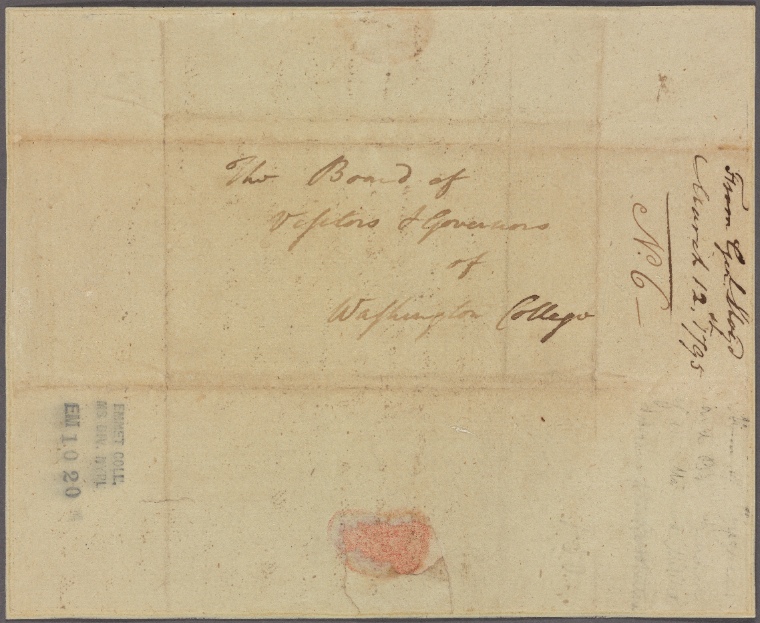 The Board of
Visitors & Governors
of
Washington College
From Gol. Lloyd
March 12.th 1795
No. 6
EMMET COLL.
MS. DIV. NYPL
EM 1020